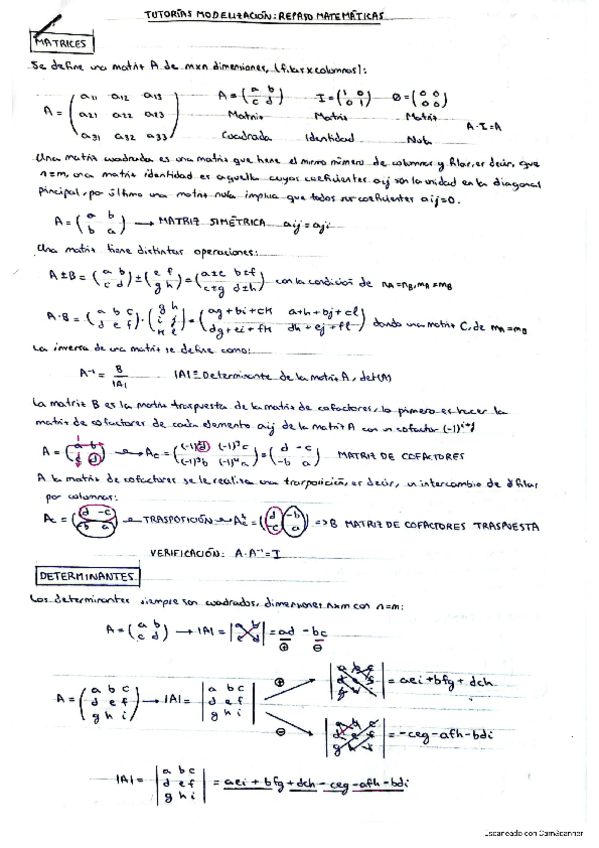 TUTORÍAS MODELIZACIÓN: REPASO MATEMÁTICAS
MATRICES
Se define una matriz A de mxn dimensiones, (filas x columnas):
A = (a11 a12 a13 / a21 a22 a23 / a31 a32 a33) A = (a b / c d) I = (1 0 / 0 1) Ø = (0 0 / 0 0)
Matriz Matriz Matriz A·I=A
Cuadrada Identidad Nula
Una matriz cuadrada es una matriz que tiene el mismo número de columnas y filas, es decir, que
n=m, una matriz identidad es aquella cuyos coeficientes aij son la unidad en la diagonal
principal, por último una matriz nula implica que todos sus coeficientes aij=0.
A = (a b / b a) → MATRIZ SIMÉTRICA aij = aji
Una matriz tiene distintas operaciones:
A±B = (a b / c d) ± (e f / g h) = (a±e b±f / c±g d±h) con la condición de nA=nB, mA=mB
A·B = (a b c / d e f)·(g h / i j / k l) = (ag+bi+ck a+h+bj+cl / dg+ei+fk dh+ej+fl) dando una matriz C, de mA=mB
La inversa de una matriz se define como:
A⁻¹ = B/|A| |A| ≡ Determinante de la matriz A, det(A)
La matriz B es la matriz traspuesta de la matriz de cofactores, lo primero es hacer la
matriz de cofactores de cada elemento aij de la matriz A con un cofactor (-1)^i+j
A = (a b / c d) → Ac = ((-1)²d (-1)³c / (-1)³b (-1)⁴a) = (d -c / -b a) MATRIZ DE COFACTORES
A la matriz de cofactores se le realiza una trasposición, es decir, un intercambio de filas
por columnas:
Ac = (d -c / -b a) → TRASPOSICIÓN → Acᵗ = (d -b / -c a) => B MATRIZ DE COFACTORES TRASPUESTA
VERIFICACIÓN: A·A⁻¹=I
DETERMINANTES
Los determinantes siempre son cuadrados, dimensiones nxm con n=m:
A = (a b / c d) → |A| = |a b / c d| = ad - bc
⊕ ⊖
⊕ |a b c / d e f / g h i| = aei + bfg + dch
A = (a b c / d e f / g h i) → |A| = |a b c / d e f / g h i|
⊖ |a b c / d e f / g h i| = -ceg - afh - bdi
|A| = |a b c / d e f / g h i| = aei + bfg + dch - ceg - afh - bdi
Escaneado con CamScanner